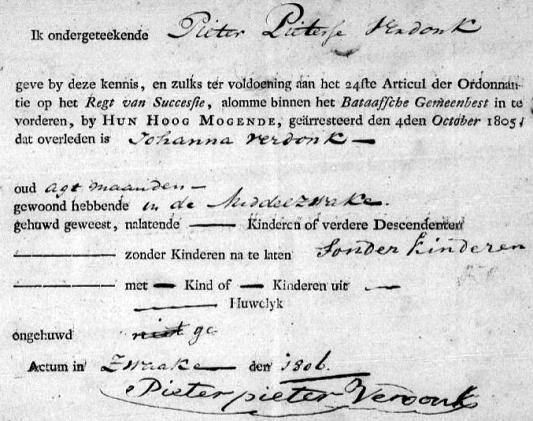 Ik ondergeteekende Pieter Pieterse Verdonk
geve by deze kennis, en zulks ter voldoening aan het 24ste Articul der Ordonnan-
tie op het Regt van Successie, alomme binnen het Bataafsche Gemeenbest in te
vorderen, by HUN HOOG MOGENDE, geärresteerd den 4den October 1805,
dat overleden is Johanna verdonk —
oud agt maanden —
gewoond hebbende in de Middelzwake.
gehuwd geweest, nalatende — Kinderen of verdere Descendenten
— zonder Kinderen na te laten Sonder kinderen
— met — Kind of — Kinderen uit —
— Huwelyk
ongehuwd niet ge
Actum in Zwaake — den 1806.
Pieter pieter Verdonk